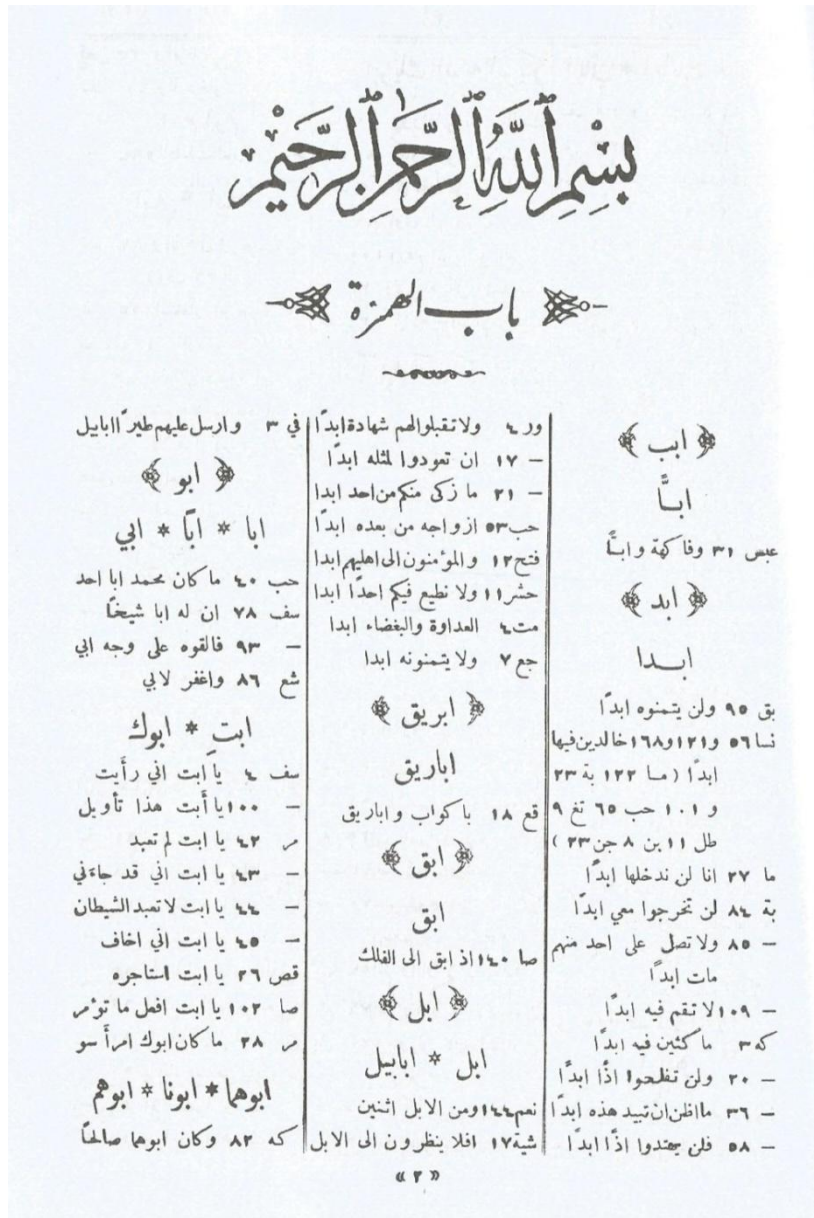 بِسْمِ ٱللّٰهِ ٱلرَّحْمٰنِ ٱلرَّحِيْمِ
باب الهمزة
﴿ ابب ﴾
ابـاًّ
عبس ٣١ وفاكهة وابـاًّ
﴿ ابد ﴾
ابـدا
بق ٩٥ ولن يتمنوه ابداً
نسا ٥٦ و١٢١ و١٦٨ خالدين فيها
ابداً (ما ١٢٢ بة ٢٣
و ١٠١ حب ٦٥ تغ ٩
طل ١١ بن ٨ جن ٢٣ )
ما ٢٧ انا لن ندخلها ابداً
بة ٨٤ لن تخرجوا معي ابداً
— ٨٥ ولا تصل على احد منهم
مات ابداً
— ١٠٩ لا تقم فيه ابداً
كه ٣ ماكثين فيه ابداً
— ٢٠ ولن تفلحوا اذًا ابداً
— ٣٦ مااظن ان تبيد هذه ابداً
— ٥٨ فلن يهتدوا اذًا ابداً
ور ٤ ولا تقبلوا لهم شهادة ابداً
— ١٧ ان تعودوا لمثله ابداً
— ٢١ ما زكى منكم من احد ابدا
حب ٥٣ ازواجه من بعده ابداً
فتح ١٢ والمؤمنون الى اهليهم ابدا
حشر ١١ ولا نطيع فيكم احداً ابدا
مت ٤ العداوة والبغضاء ابدا
جع ٧ ولا يتمنونه ابدا
﴿ ابريق ﴾
اباريق
قع ١٨ باكواب واباريق
﴿ ابق ﴾
ابق
صا ١٤٠ اذ ابق الى الفلك
﴿ ابل ﴾
ابل * ابابيل
نعم ١٤٤ ومن الابل اثنين
شية ١٧ افلا ينظرون الى الابل
في ٣ وارسل عليهم طيراً ابابيل
﴿ ابو ﴾
ابا * ابّا * ابي
حب ٤٠ ماكان محمد ابا احد
سف ٧٨ ان له ابا شيخاً
— ٩٣ فالقوه على وجه ابي
شع ٨٦ واغفر لابي
ابتِ * ابوك
سف ٤ يا ابت اني رأيت
— ١٠٠ يا أبت هذا تأويل
مر ٤٢ يا ابت لم تعبد
— ٤٣ يا ابت اني قد جاءني
— ٤٤ يا ابت لا تعبد الشيطان
— ٤٥ يا ابت اني اخاف
قص ٢٦ يا ابت استاجره
صا ١٠٢ يا ابت افعل ما تؤمر
مر ٢٨ ماكان ابوك امرأ سو
ابوهما * ابونا * ابوهم
كه ٨٢ وكان ابوهما صالحاً
« ٢ »